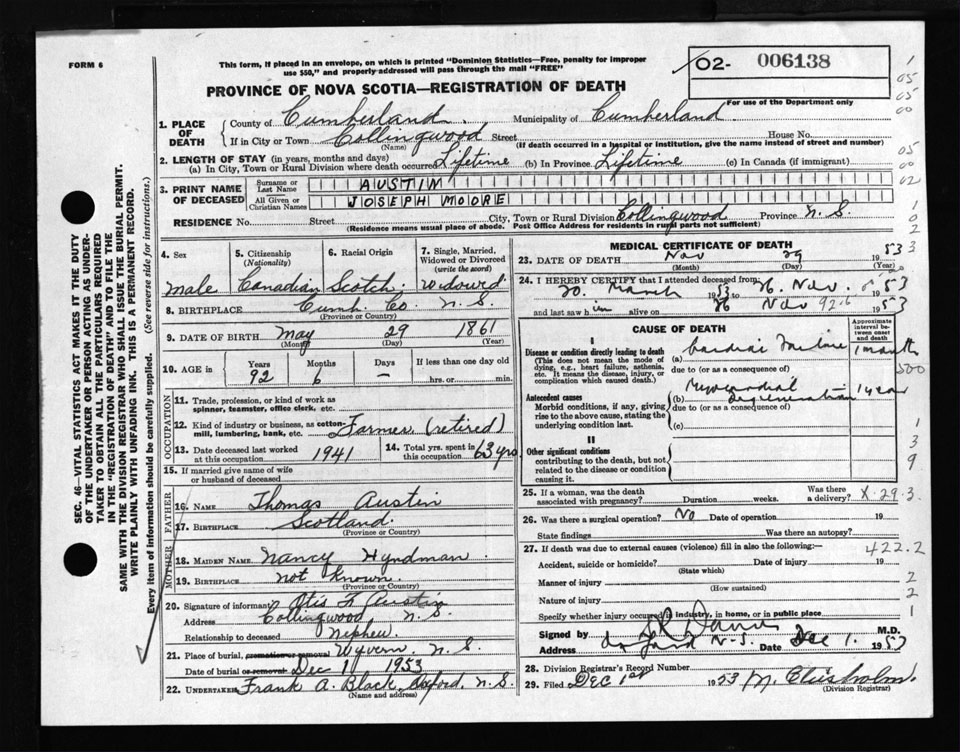 FORM 6
This form, if placed in an envelope, on which is printed "Dominion Statistics—Free, penalty for improper
use $50," and properly addressed will pass through the mail "FREE"
PROVINCE OF NOVA SCOTIA—REGISTRATION OF DEATH
02- 006138
For use of the Department only
1. PLACE OF DEATH
County of Cumberland Municipality of Cumberland
If in City or Town Collingwood Street House No.
(Name) (If death occurred in a hospital or institution, give the name instead of street and number)
2. LENGTH OF STAY (in years, months and days)
(a) In City, Town or Rural Division where death occurred Lifetime (b) In Province Lifetime (c) In Canada (if immigrant)
3. PRINT NAME OF DECEASED
Surname or Last Name AUSTIN
All Given or Christian Names JOSEPH MOORE
RESIDENCE No. Street City, Town or Rural Division Collingwood Province N.S.
(Residence means usual place of abode. Post Office Address for residents in rural parts not sufficient)
4. Sex
male
5. Citizenship
(Nationality)
Canadian
6. Racial Origin
Scotch
7. Single, Married,
Widowed or Divorced
(write the word)
Widowed
8. BIRTHPLACE Cumb. Co. N.S.
(Province or Country)
9. DATE OF BIRTH May 29 1861
(Month) (Day) (Year)
10. AGE in
Years Months Days If less than one day old
92 6 — hrs. or min.
OCCUPATION
11. Trade, profession, or kind of work as
spinner, teamster, office clerk, etc.
12. Kind of industry or business, as cotton-
mill, lumbering, bank, etc. Farmer (retired)
13. Date deceased last worked
at this occupation 1941
14. Total yrs. spent in
this occupation 63 yrs
15. If married give name of wife
or husband of deceased
FATHER
16. NAME Thomas Austin
17. BIRTHPLACE Scotland
(Province or Country)
MOTHER
18. MAIDEN NAME Nancy Hyndman
19. BIRTHPLACE not known
(Province or Country)
20. Signature of informant Otis Austin
Address Collingwood N.S.
Relationship to deceased nephew
21. Place of burial, cremation or removal Wyvern, N.S.
Date of burial or removal Dec 1 1953
22. UNDERTAKER Frank A. Black, Oxford, N.S.
(Name and address)
MEDICAL CERTIFICATE OF DEATH
23. DATE OF DEATH Nov 29 1953
(Month) (Day) (Year)
24. I HEREBY CERTIFY that I attended deceased from:
20. March 1953 to 26. Nov. 1953
and last saw him alive on 26 Nov 1953
92.6
CAUSE OF DEATH
Approximate interval between onset and death
I
Disease or condition directly leading to death
(This does not mean the mode of
dying, e.g., heart failure, asthenia,
etc. It means the disease, injury, or
complication which caused death.)
(a) Cardiac Failure 1 month
due to (or as a consequence of)
Antecedent causes
Morbid conditions, if any, giving
rise to the above cause, stating the
underlying condition last.
(b) Myocardial degeneration 1 year
due to (or as a consequence of)
(c)
II
Other significant conditions
contributing to the death, but not
related to the disease or condition
causing it.
25. If a woman, was the death
associated with pregnancy? Duration weeks. Was there
a delivery?
X-29.3
26. Was there a surgical operation? No Date of operation 19
State findings Was there an autopsy?
27. If death was due to external causes (violence) fill in also the following:
422.2
Accident, suicide or homicide? Date of injury 19
(State which)
Manner of injury
(How sustained)
Nature of injury
Specify whether injury occurred in industry, in home, or in public place
Signed by M.D.
Address N.S. Date Dec 1. 1953
28. Division Registrar's Record Number
29. Filed Dec 1st 1953 M. Chisholm
(Division Registrar)
SEC. 46—VITAL STATISTICS ACT MAKES IT THE DUTY
OF THE UNDERTAKER OR PERSON ACTING AS UNDER-
TAKER TO OBTAIN ALL THE PARTICULARS REQUIRED
IN THE "REGISTRATION OF DEATH" AND TO FILE THE
SAME WITH THE DIVISION REGISTRAR WHO SHALL ISSUE THE BURIAL PERMIT.
WRITE PLAINLY WITH UNFADING INK. THIS IS A PERMANENT RECORD.
Every item of information should be carefully supplied. (See reverse side for instructions.)
1
05
05
00
05
00
02
1
0
2
3
500
1
3
9
2
2
1